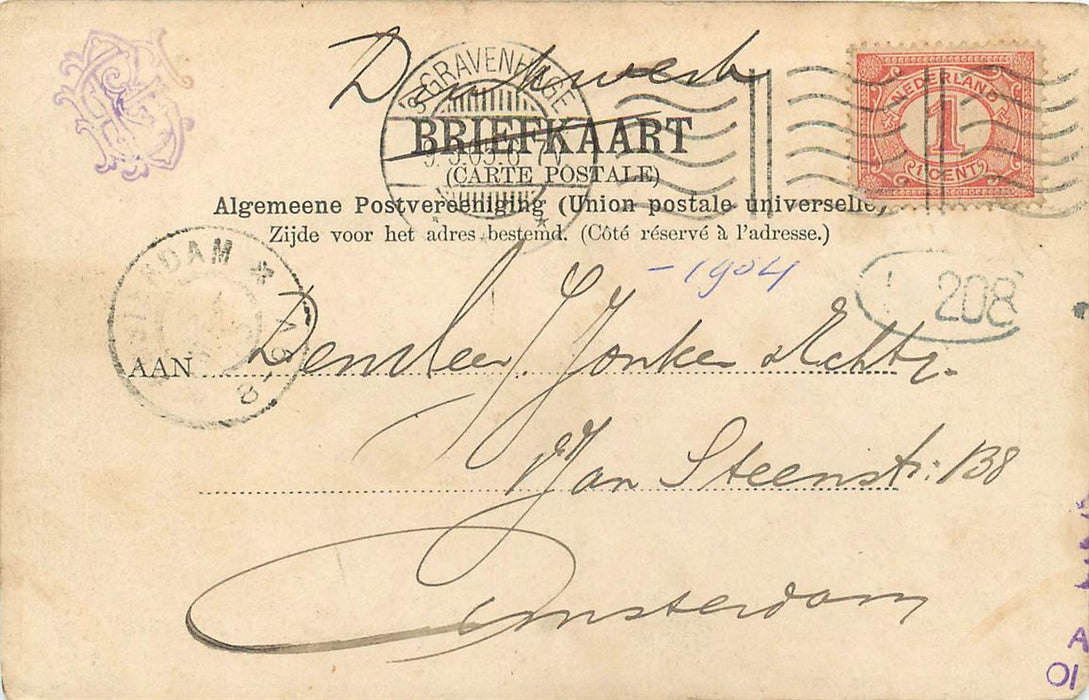 Drukwerk
'S-GRAVENHAGE
BRIEFKAART
(CARTE POSTALE)
Algemeene Postvereeniging (Union postale universelle)
Zijde voor het adres bestemd. (Côté réservé à l'adresse.)
NEDERLAND
1
1 CENT
-1904
208
AAN Den Heer J. Jonker
Jan Steenstr: 138
Amsterdam
A
01